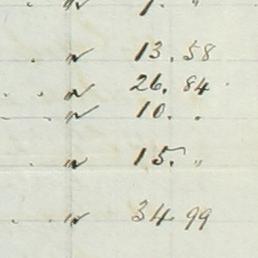 . " 13.58
. . " 26.84
" 10. .
. " 15. "
. . " 34.99